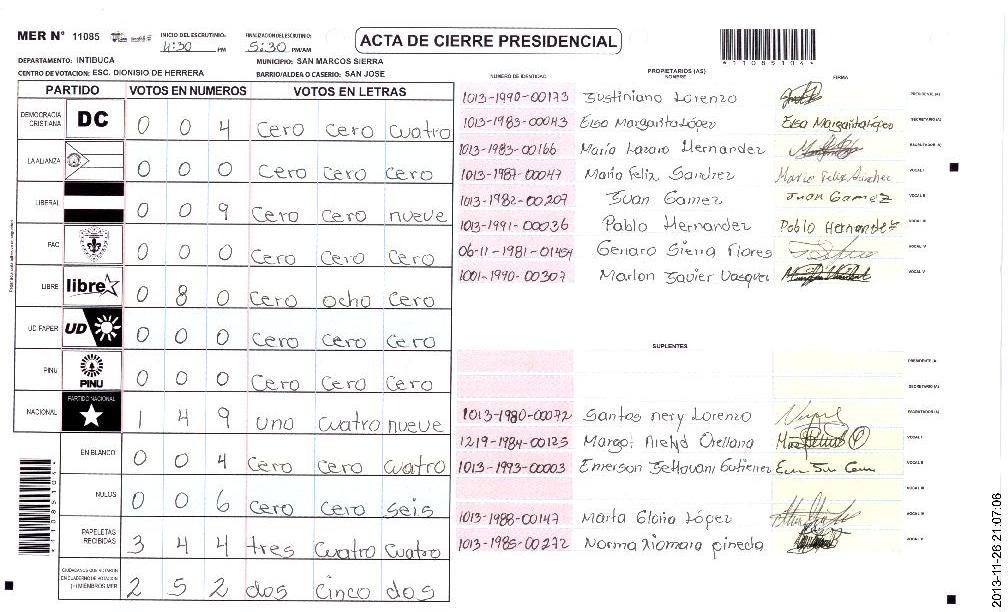 MER N° 11085 INICIO DEL ESCRUTINIO: 4:30 PM FINALIZACION DEL ESCRUTINIO: 5:30 PM/AM ACTA DE CIERRE PRESIDENCIAL
DEPARTAMENTO: INTIBUCA MUNICIPIO: SAN MARCOS SIERRA
CENTRO DE VOTACION: ESC. DIONISIO DE HERRERA BARRIO/ALDEA O CASERIO: SAN JOSE
PARTIDO VOTOS EN NUMEROS VOTOS EN LETRAS
DEMOCRACIA CRISTIANA DC 0 0 4 cero cero cuatro
LA ALIANZA 0 0 0 cero cero cero
LIBERAL 0 0 9 cero cero nueve
PAC 0 0 0 cero cero cero
LIBRE libre 0 8 0 cero ocho cero
UD FAPER UD 0 0 0 cero cero cero
PINU PINU 0 0 0 cero cero cero
NACIONAL PARTIDO NACIONAL 1 4 9 uno cuatro nueve
EN BLANCO 0 0 4 cero cero cuatro
NULOS 0 0 6 cero cero seis
PAPELETAS RECIBIDAS 3 4 4 tres cuatro cuatro
CIUDADANOS QUE VOTARON EN CUADERNO DE VOTACION (+) MIEMBROS MER 2 5 2 dos cinco dos
PROPIETARIOS (AS)
NUMERO DE IDENTIDAD NOMBRE FIRMA
1013-1990-00173 Justiniano Lorenzo PRESIDENTE (A)
1013-1983-00043 Elsa Margarita López Elsa Margarita López SECRETARIO (A)
1013-1983-00166 Maria Lazaro Hernandez ESCRUTADOR (A)
1013-1987-00047 Maria Feliz Sanchez VOCAL I
1013-1982-00207 Juan Gamez Juan Gamez VOCAL II
1013-1991-00036 Pablo Hernandez Pablo Hernandez VOCAL III
06-11-1981-01454 Genaro Sierra Flores VOCAL IV
1001-1990-00307 Marlon Javier Vasquez VOCAL V
SUPLENTES
PRESIDENTE (A)
SECRETARIO (A)
1013-1980-00072 Santos nery Lorenzo ESCRUTADOR (A)
1219-1984-00125 Margot Orellana VOCAL I
1013-1993-00003 Emerson VOCAL II
VOCAL III
1013-1988-00147 Marta Gloria López VOCAL IV
1013-1985-00272 Norma Xiomara pineda VOCAL V
*11085104*
2013-11-26 21:07:06